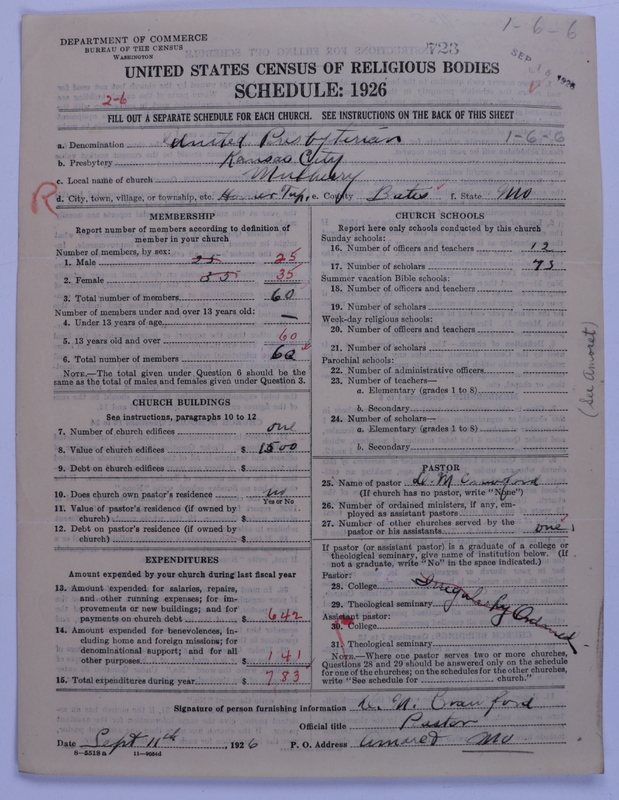 1-6-6
DEPARTMENT OF COMMERCE
BUREAU OF THE CENSUS
WASHINGTON
723
SEP 16 1926
UNITED STATES CENSUS OF RELIGIOUS BODIES
SCHEDULE: 1926
2-6
FILL OUT A SEPARATE SCHEDULE FOR EACH CHURCH. SEE INSTRUCTIONS ON THE BACK OF THIS SHEET
a. Denomination United Presbyterian 1-6-6
b. Presbytery Kansas City
c. Local name of church Mulberry
R d. City, town, village, or township, etc. Homer Twp. e. County Bates f. State Mo
MEMBERSHIP
Report number of members according to definition of
member in your church
Number of members, by sex:
1. Male 25 25
2. Female 35 35
3. Total number of members 60
Number of members under and over 13 years old:
4. Under 13 years of age —
5. 13 years old and over 60
6. Total number of members 60
NOTE.—The total given under Question 6 should be the
same as the total of males and females given under Question 3.
CHURCH BUILDINGS
See instructions, paragraphs 10 to 12
7. Number of church edifices one
8. Value of church edifices $ 1500
9. Debt on church edifices $
10. Does church own pastor's residence no
Yes or No
11. Value of pastor's residence (if owned by
church) $
12. Debt on pastor's residence (if owned by
church) $
EXPENDITURES
Amount expended by your church during last fiscal year
13. Amount expended for salaries, repairs,
and other running expenses; for im-
provements or new buildings; and for
payments on church debt $ 642
14. Amount expended for benevolences, in-
cluding home and foreign missions; for
denominational support; and for all
other purposes $ 141
15. Total expenditures during year $ 783
CHURCH SCHOOLS
Report here only schools conducted by this church
Sunday schools:
16. Number of officers and teachers 12
17. Number of scholars 73
Summer vacation Bible schools:
18. Number of officers and teachers
19. Number of scholars
Week-day religious schools:
20. Number of officers and teachers
21. Number of scholars
Parochial schools:
22. Number of administrative officers
23. Number of teachers—
a. Elementary (grades 1 to 8)
b. Secondary
24. Number of scholars—
a. Elementary (grades 1 to 8)
b. Secondary
(See Amoret)
PASTOR
25. Name of pastor D. M. Crawford
(If church has no pastor, write "None")
26. Number of ordained ministers, if any, em-
ployed as assistant pastors
27. Number of other churches served by the
pastor or his assistants one
If pastor (or assistant pastor) is a graduate of a college or
theological seminary, give name of institution below. (If
not a graduate, write "No" in the space indicated.)
Pastor:
28. College
29. Theological seminary
Irregularly Ordained
Assistant pastor:
30. College
31. Theological seminary
NOTE.—Where one pastor serves two or more churches,
Questions 28 and 29 should be answered only on the schedule
for one of the churches; on the schedules for the other churches,
write "See schedule for church."
Signature of person furnishing information D. M. Crawford
Official title Pastor
Date Sept 11th, 1926 P. O. Address Amoret Mo
8-5518a